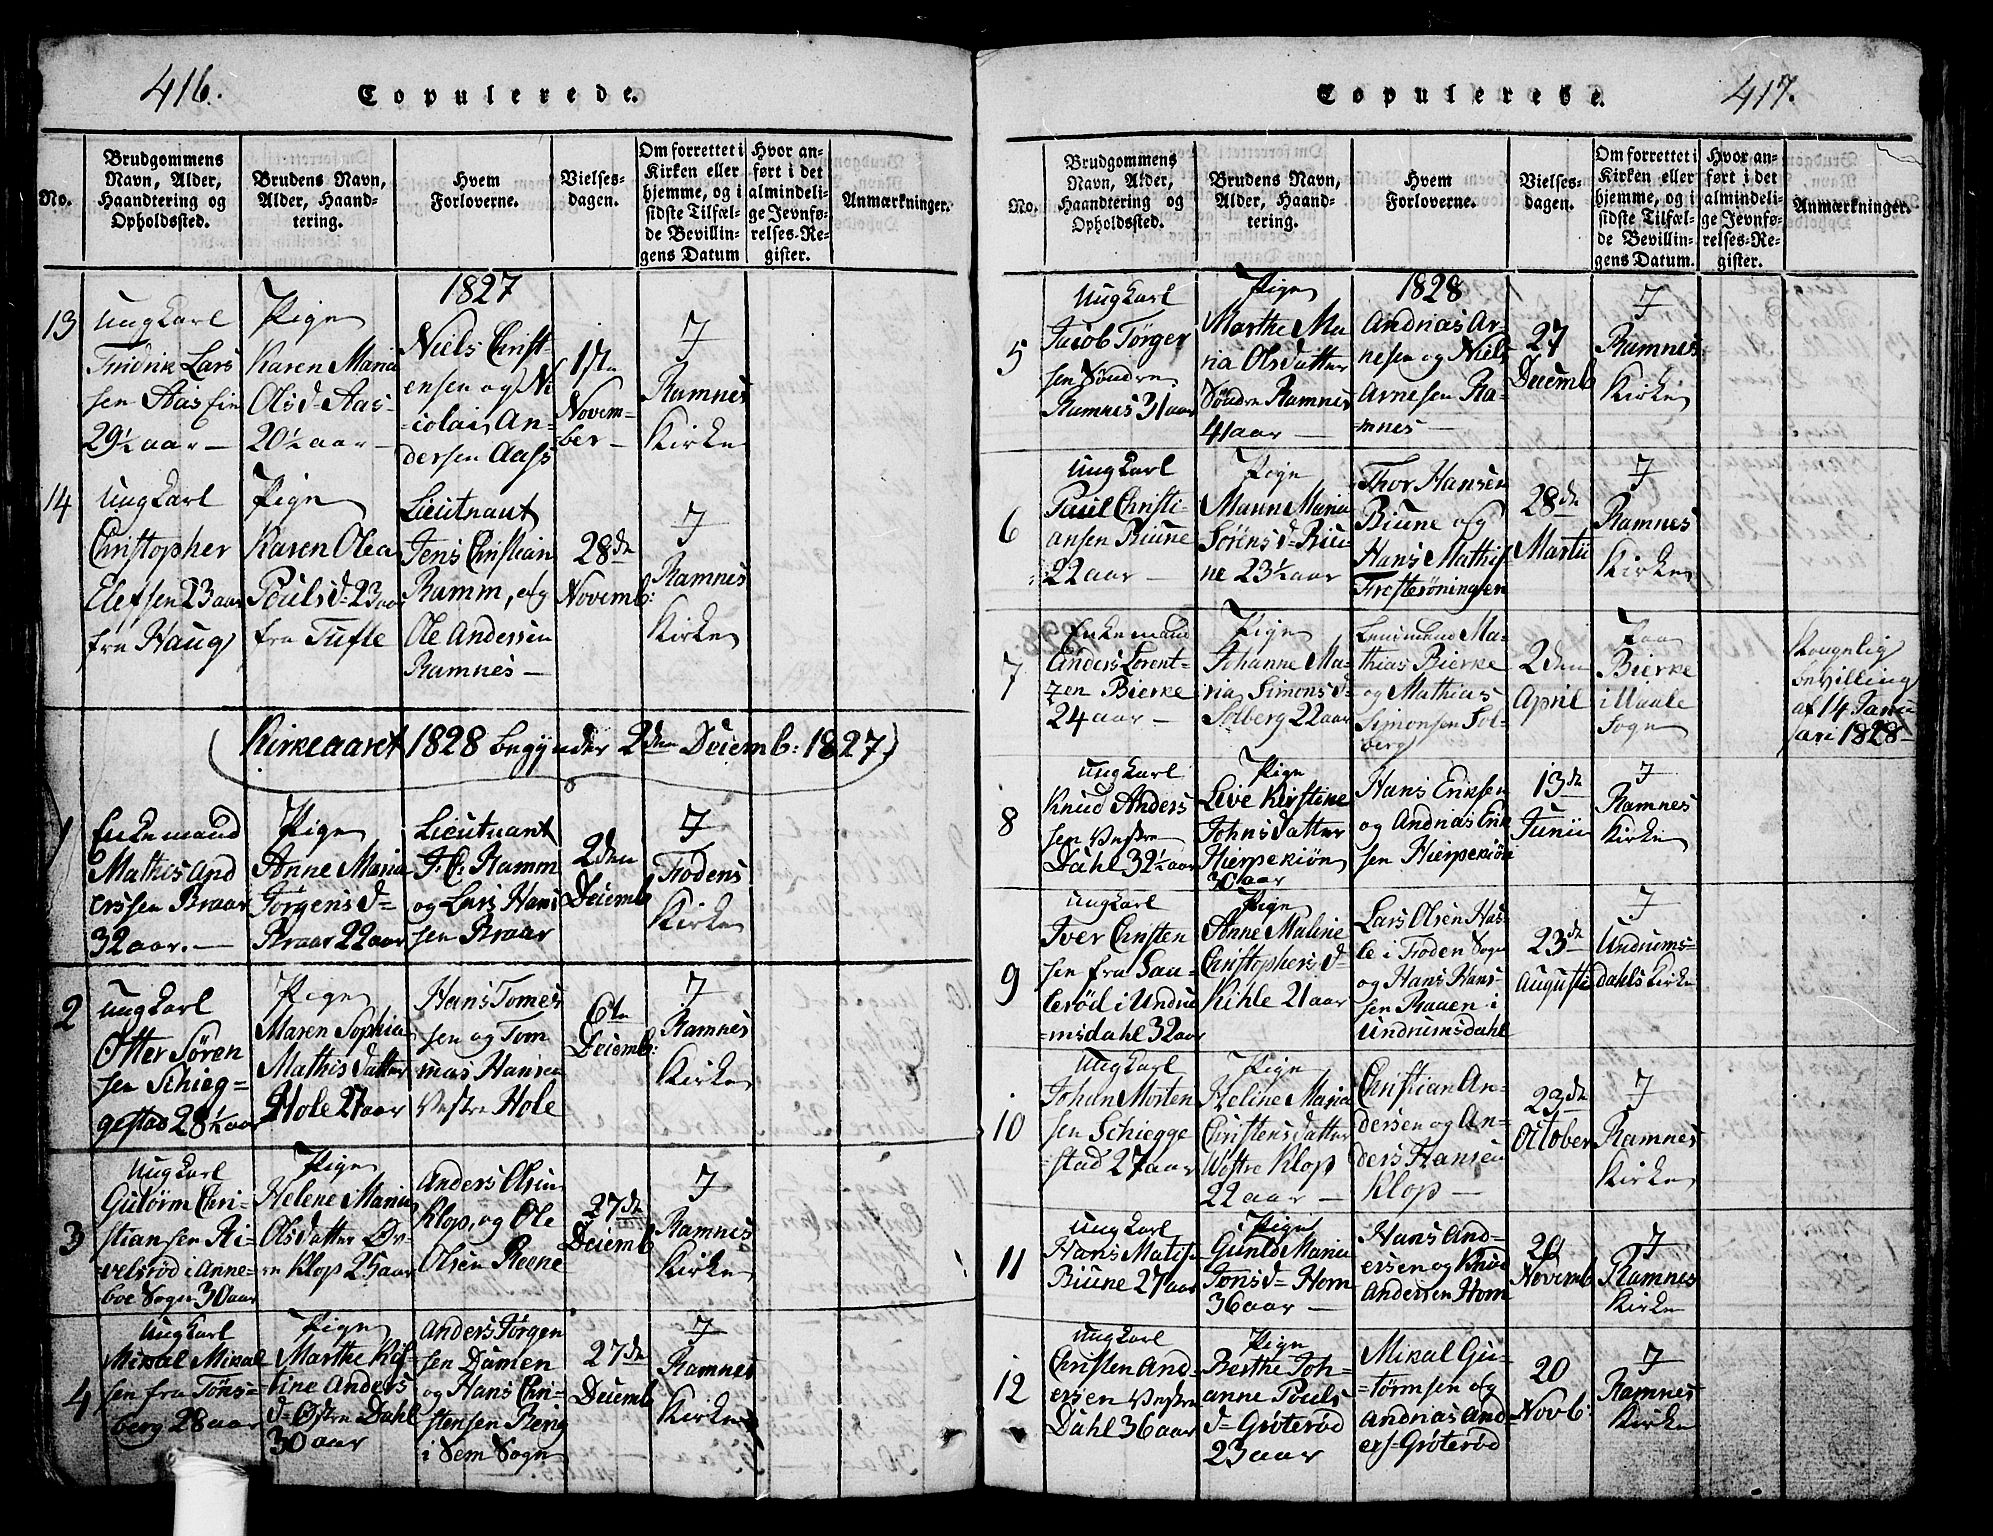 416.
Copulerede.
No.
Brudgommens
Navn, Alder,
Haandtering og
Opholdssted.
Brudens Navn,
Alder, Haand-
tering.
Hvem
Forloverne.
Vielses-
dagen.
Om forrettet i
Kirken eller
hjemme, og i
sidste Tilfæl-
de Bevillin-
gens Datum
Hvor an-
ført i det
almindeli-
ge Jevnfø-
relses-Re-
gister.
Anmærkninger.
1827
13
Ungkarl
Fridrik Lars
sen Aas Eie
29½ aar —
Pige
Karen Maria
Olsd= Aas-
20½ aar —
Niels Christ-
ensen og Ni-
colai An-
dersen Aass
17de
Novem-
ber —
I
Ramnes
Kirke
14
Ungkarl
Christopher
Elefsen 23 aar
fra Haug
Pige
Karen Olea
Pouls d= 23 aar
fra Tufte
Lieutnant
Jens Christian
Ramm, og
Ole Andersen
Ramnes —
28de
Novemb:
I
Ramnes
Kirke
Kirkeaaret 1828 begynder 2den Decemb: 1827
1
Enkemand
Mathis And
erssen Braar
32 aar. —
Pige
Anne Maria
Jørgensd=
Braar 22 aar
Lieutnant
J. C. Ramm
og Lars Hans
sen Braar
2den
Decemb
I
Fodens
Kirke
2
Ungkarl
Otter Søren
sen Schieg=
gestad 28½ aar
Pige
Maren Sophia
Mathisdatter
Hole 27 aar
Hans Tomes
sen og Tom
mas Hansen
Vestre Hole
6te
Decemb:
I
Ramnes
Kirke
3
Ungkarl
Gutorm Chri-
stiansen Ri-
velsrød i Anne-
boe Sogn 30 aar
Pige
Helene Maria
Olsdatter Øv-
re Klop 25 aar
Anders Olsen
Klop, og Ole
Olsen Reene
27de
Decemb
I
Ramnes
Kirke
4
Ungkarl
Mikal Mikal
sen fra Tøns-
berg 28 aar
Pige
Marthe Kis-
tine Anders
d= Østre Dahl
30 aar
Anders Jørgen
sen Damen
og Hans Chri-
stensen Berg
i Sem Sogn
27de
Decemb
I
Ramnes
Kirke
417.
Copulerede.
No.
Brudgommens
Navn, Alder,
Haandtering og
Opholdssted.
Brudens Navn,
Alder, Haand-
tering.
Hvem
Forloverne.
Vielses-
dagen.
Om forrettet i
Kirken eller
hjemme, og i
sidste Tilfæl-
de Bevillin-
gens Datum.
Hvor an-
ført i det
almindeli-
ge Jevnfø-
relses-Re-
gister.
Anmærkninger.
1828
5
Ungkarl
Jacob Tørger
sen Søndre
Ramnes 31 aar
Pige
Marthe Ma
ria Olsdatter
Søndre Ramnes
41 aar —
Andrias Ar-
nesen og Niels
Arnesen Ra-
mnes —
27
Decemb
I
Ramnes
Kirke
6
Ungkarl
Paul Christi-
ansen Biune
22 aar —
Pige
Manne Maria
Sørens d= Biu-
ne 23½ aar
Thor Hansen
Biune og
Hans Mathis
Frosterøningen
28de
Martii
I
Ramnes
Kirke
7
Enkemand
Anders Lorent-
zen Bierke
24 aar —
Pige
Johanne Ma-
ria Simonsd=
Solberg 22 aar
Lensmand Ma-
thias Bierke
og Mathias
Simonsen Sol-
berg
2den
April
Paa
Bierke
i Vaale
Sogn
Kongelig
bevilling
af 14 Janu
ari 1828-
8
Ungkarl
Knud Anders
sen Vestre
Dahl 32½ aar
Pige
Live Kirstine
Johnsdatter
Hierpekiøn
30 aar
Hans Eriksen
og Andrias Erik
sen Hierpekiøn
13de
Junii
I
Ramnes
Kirke
9
Ungkarl
Iver Christen
sen fra Sau-
lerød i Undru
msdahl 32 aar
Pige
Anne Maline
Christophers d=
Kihle 21 aar
Lars Olsen Has
le i Froden Sogn
og Hans Hans-
sen Raaen i
Undrumsdahl
23de
Augusti
I
Undrums-
dahls Kirke
10
Ungkarl
Johan Morten
sen Schiegge
stad 27 aar
Pige
Heline Maria
Christensdatter
Vestre Klop
22 aar —
Christian An-
dersen og An-
ders Hansen
Klop —
23de
October
I
Ramnes
Kirke
11
Ungkarl
Hans Matis
Biune 27 aar
Pige
Gunild Maria
Jonsd= Horn
36 aar —
Hans And-
ersen og Knud
Andersen Horn
20
Novemb
I
Ramnes
Kirke
12
Ungkarl
Christen And
ersen Vestre
Dahl 36 aar
Pige
Berthe Joh-
anne Pouls
d= Grøterød
23 aar
Mikal Gu-
tormsen og
Andrias And
ers- Grøterød
20
Novb:
I
Ramnes
Kirke